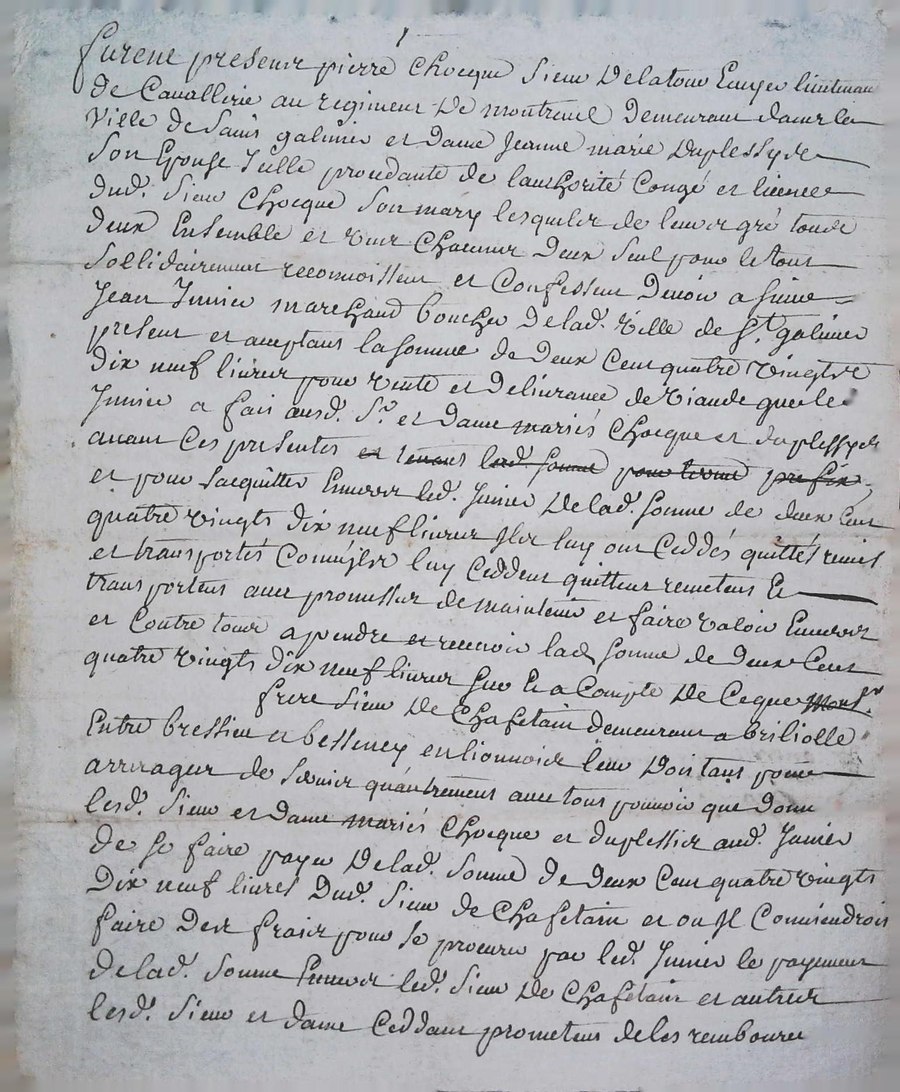 furent presents pierre Chocque Sieur Delatour Ecuyer lieutenant
de Cavallerie au regiment De montreuil Demeurant dans la
Ville de Saint galmier et Dame Jeanne marie Duplessy
Son Epouse Icelle procedante de lauthorité Congé et licence
dud. Sieur Chocque Son mary lesquels de leur gré tous
deux Ensemble et Un Chacun Deux Seul pour le tout
Sollidairement reconnoissent et Confessent Devoir a Sieur
Jean Junier marchand boucher De lad. Ville de St. galmier
present et acceptant la somme de Deux Cent quatre Vingts
Dix neuf livres pour Vente et Delivrance de Viande que le
Junier a fait ausd. Sr. et Dame mariés Chocque et duplessy
avant Ces presentes et tenant lad. somme pour terme prefix,
et pour Sacquitter Envers led. Junier De lad. Somme de deux Cent
quatre Vingts Dix neuf livres Ils luy ont Ceddés quittés remis
et transportés Comme Ils luy Ceddent quittent remettent Et
transportent avec promesse de maintenir et faire Valoir Envers
et Contre tous a prendre et recevoir lad. Somme de Deux Cent
quatre Vingts Dix neuf livres Sur Et a Compte De Ceque Monsr.
frere Sieur De Chafetain demeurant a briliolle
Entre bressieu et bessenay en lionnois leur Doit tant pour
arrerages de qu'autrement avec tous pouvoir que donne
lesd. Sieur et Dame mariés Chocque et duplessier aud. Junier
De Se faire payer De lad. Somme de Deux Cent quatre Vingts
Dix neuf livres Dud. Sieur de Chafetain et ou Il Conviendroit
faire Des fraix pour Se procurer par led. Junier le payement
De lad. Somme Envers led. Sieur De Chafetain et autres
lesd. Sieur et Dame Ceddant promettent de les rembourcer